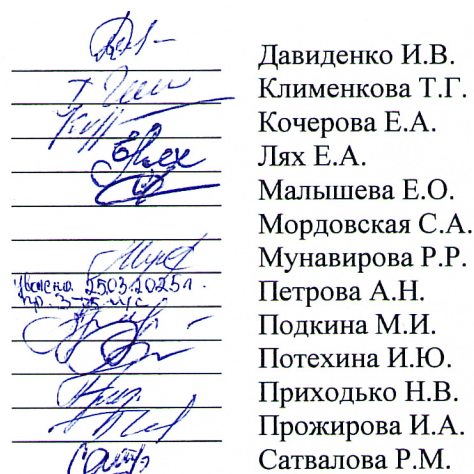 Давиденко И.В.
Клименкова Т.Г.
Кочерова Е.А.
Лях Е.А.
Малышева Е.О.
Мордовская С.А.
Мунавирова Р.Р.
25.03.2025г. Петрова А.Н.
Подкина М.И.
Потехина И.Ю.
Приходько Н.В.
Прожирова И.А.
Сатвалова Р.М.